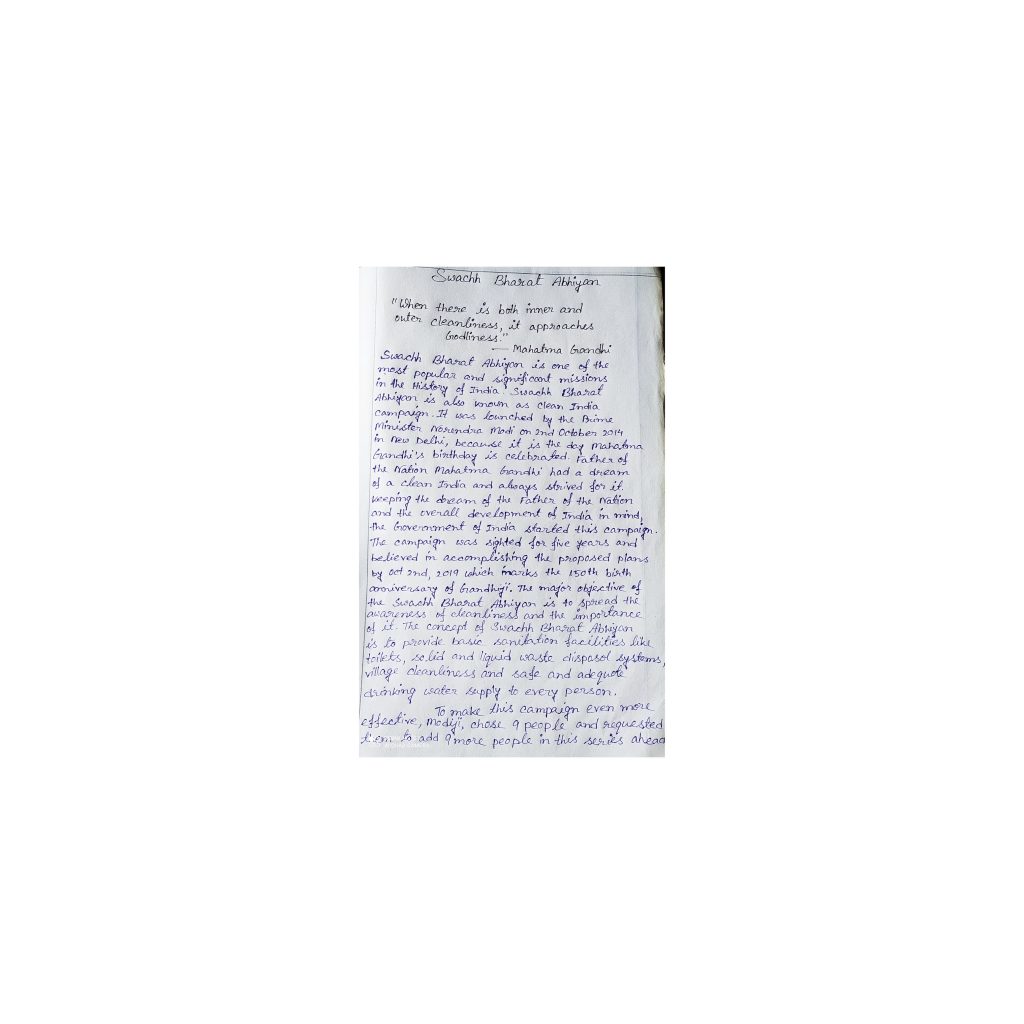 Swachh Bharat Abhiyan
"When there is both inner and
outer cleanliness, it approaches
Godliness."
— Mahatma Gandhi
Swachh Bharat Abhiyan is one of the
most popular and significant missions
in the History of India. Swachh Bharat
Abhiyan is also known as clean India
campaign. It was lounched by the Prime
Minister Narendra Modi on 2nd October 2014
in New Delhi, because it is the day Mahatma
Gandhi's birthday is celebrated. Father of
the Nation Mahatma Gandhi had a dream
of a clean India and always strived for it.
keeping the dream of the Father of the Nation
and the overall development of India in mind,
the Government of India started this campaign.
The campaign was sighted for five years and
believed in accomplishing the proposed plans
by oct 2nd, 2019 which marks the 150th birth
anniversary of Gandhiji. The major objective of
the Swachh Bharat Abhiyan is to spread the
awareness of cleanliness and the importance
of it. The concept of Swachh Bharat Abhiyan
is to provide basic sanitation facilities like
toilets, solid and liquid waste disposal systems,
village cleanliness and safe and adequate
drinking water supply to every person.
To make this campaign even more
effective, Modiji, chose 9 people and requested
them to add 9 more people in this series ahead